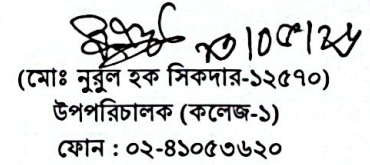 (মোঃ নুরুল হক সিকদার-১২৫৭০)
উপপরিচালক (কলেজ-১)
ফোন : ০২-৪১০৫৩৬২০